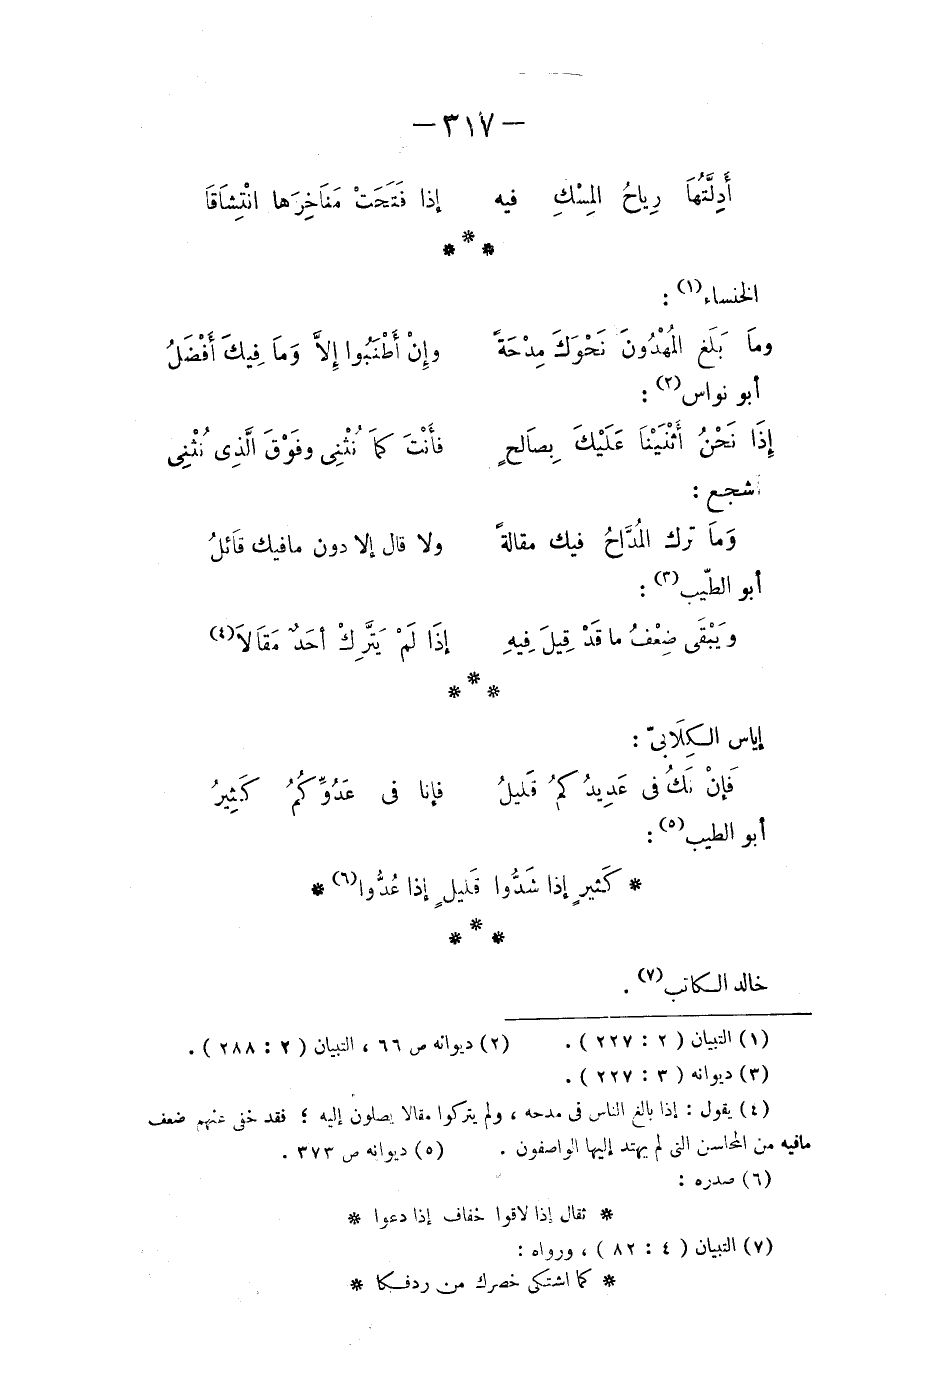 — ٣١٧ —
أَدِلَّتُهَا رِياحُ المِسْكِ فيه إذا فَتَحَتْ مَنَاخِرَها انْتِشَاقَا
* * *
الخنساء(١) :
وماَ بَلَغ المُهْدُونَ نَحْوَكَ مِدْحَةً وإِنْ أَطْنَبُوا إِلاَّ وَمَا فِيكَ أَفْضَلُ
أبو نواس(٢) :
إِذَا نَحْنُ أَثْنَيْنَا عَلَيْكَ بِصَالحٍ فأَنْتَ كمَا نُثْنِى وفَوْقَ الَّذِى نُثْنِى
أشجع :
وَمَا ترك المُدَّاحُ فيك مقالةً ولا قال إلا دون مافيك قَائلُ
أبو الطيّب(٣) :
وَيَبْقَى ضِعْفُ ما قَدْ قِيلَ فِيهِ إذَا لَمْ يَتَّرِكْ أحَدٌ مَقَالاَ(٤)
* * *
إياس الـكِلَابىّ :
فَإنْ نَكُ فى عَدِيدِكُمُ قَليلُ فإنا فى عَدُوِّكُمُ كَثِيرُ
أبو الطيب(٥) :
* كَثيرٍ إذا شَدُّوا قَليلٍ إذا عُدُّوا(٦) *
* * *
خالد الـكاتب(٧) .
(١) التبيان ( ٢ : ٢٢٧ ) . (٢) ديوانه ص ٦٦ ، التبيان ( ٢ : ٢٨٨ ) .
(٣) ديوانه ( ٣ : ٢٢٧ ) .
(٤) يقول : إذا بالغ الناس فى مدحه ، ولم يتركوا مقالا يصلون إليه ؛ فقد خفى عنهم ضعف
مافيه من المحاسن التى لم يهتد إليها الواصفون . (٥) ديوانه ص ٣٧٣ .
(٦) صدره :
* ثقال إذا لاقوا خفاف إذا دعوا *
(٧) التبيان ( ٤ : ٨٢ ) ، ورواه :
* كما اشتكى خصرك من ردفـكا *